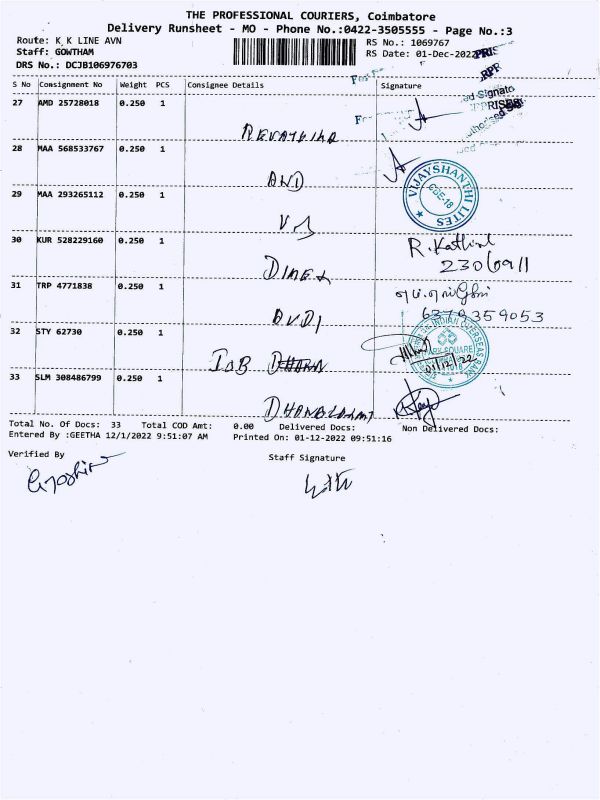 THE PROFESSIONAL COURIERS, Coimbatore
Delivery Runsheet - MO - Phone No.:0422-3505555 - Page No.:3
Route: K K LINE AVN
RS No.: 1069767
Staff: GOWTHAM
RS Date: 01-Dec-2022
DRS No.: DCJB106976703
S No Consignment No Weight PCS Consignee Details Signature
27 AMD 25728018 0.250 1
28 MAA 568533767 0.250 1
AND
VIJAYSHANTHI LITES
CBE-18
29 MAA 293265112 0.250 1
30 KUR 528229160 0.250 1
R. Kathir
2306911
31 TRP 4771838 0.250 1
6379359053
32 STY 62730 0.250 1
IOB
01/12/22
33 SLM 308486799 0.250 1
Total No. Of Docs: 33 Total COD Amt: 0.00 Delivered Docs: Non Delivered Docs:
Entered By :GEETHA 12/1/2022 9:51:07 AM Printed On: 01-12-2022 09:51:16
Verified By
Staff Signature